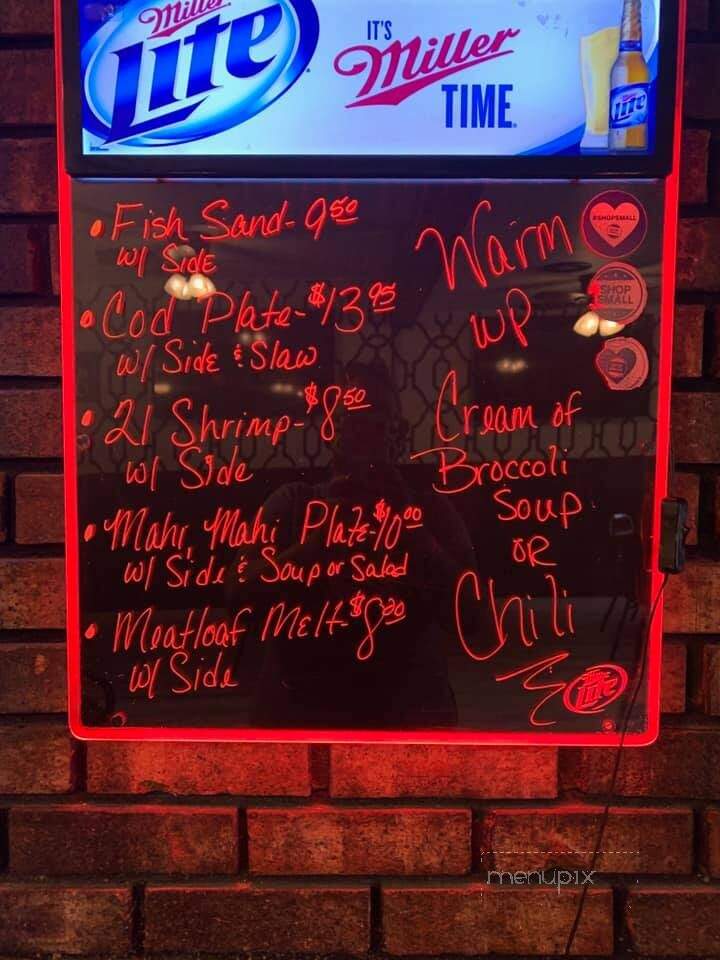 Miller
Lite
IT'S
Miller
TIME
Lite
• Fish Sand - 9 50
w/ Side
• Cod Plate - $13 95
w/ Side & Slaw
• 21 Shrimp - $8 50
w/ Side
• Mahi, Mahi Plate - $10 00
w/ Side & Soup or Salad
• Meatloaf Melt - $8 00
w/ Side
Warm
up
Cream of
Broccoli
Soup
OR
Chili
#SHOPSMALL
SHOP
SMALL
Lite
menupix